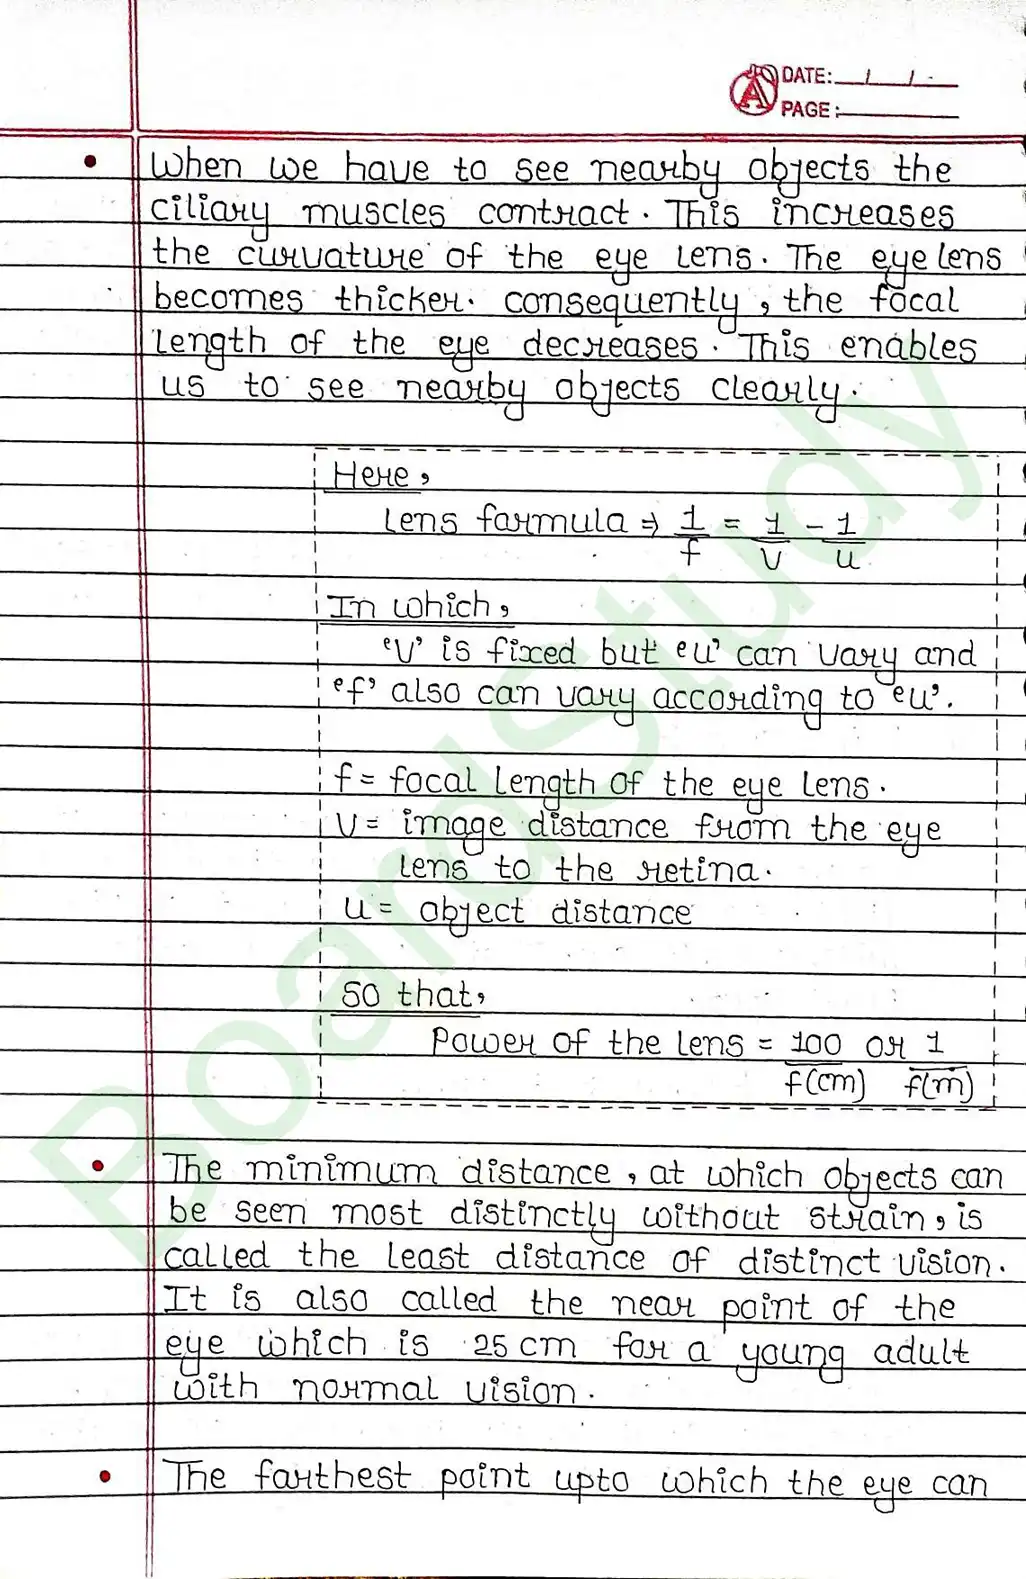 DATE: / /
PAGE:
• When we have to see nearby objects the
ciliary muscles contract. This increases
the curvature of the eye lens. The eye lens
becomes thicker. consequently, the focal
length of the eye decreases. This enables
us to see nearby objects clearly.
Here,
Lens formula ⇒ 1/f = 1/v - 1/u
In which,
'v' is fixed but 'u' can vary and
'f' also can vary according to 'u'.
f = focal length of the eye lens.
v = image distance from the eye
lens to the retina.
u = object distance
So that,
Power of the lens = 100/f(cm) or 1/f(m)
• The minimum distance, at which objects can
be seen most distinctly without strain, is
called the least distance of distinct vision.
It is also called the near point of the
eye which is 25 cm for a young adult
with normal vision.
• The farthest point upto which the eye can
BoardStudy